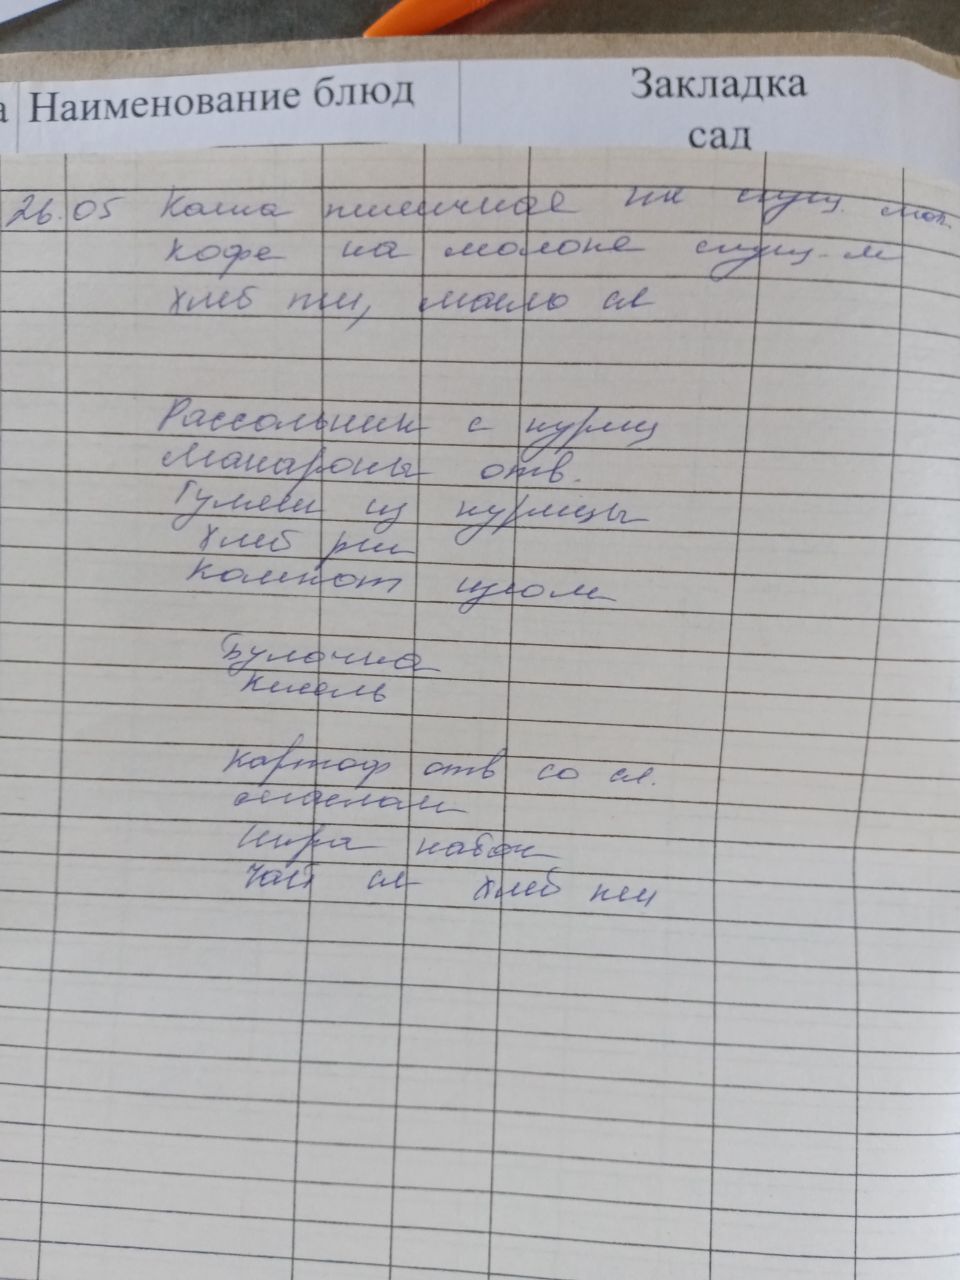 а Наименование блюд Закладка
сад
26.05 Каша пшеничная на сгущ. мол.
Кофе на молоке сгущ. м
Хлеб пш, масло сл
Рассольник с куриц
Макароны отв.
Гуляш из курицы
Хлеб рж
Компот изюм
Булочка
Кисель
Картоф отв со сл.
маслом
Икра кабач
Чай сл Хлеб пш